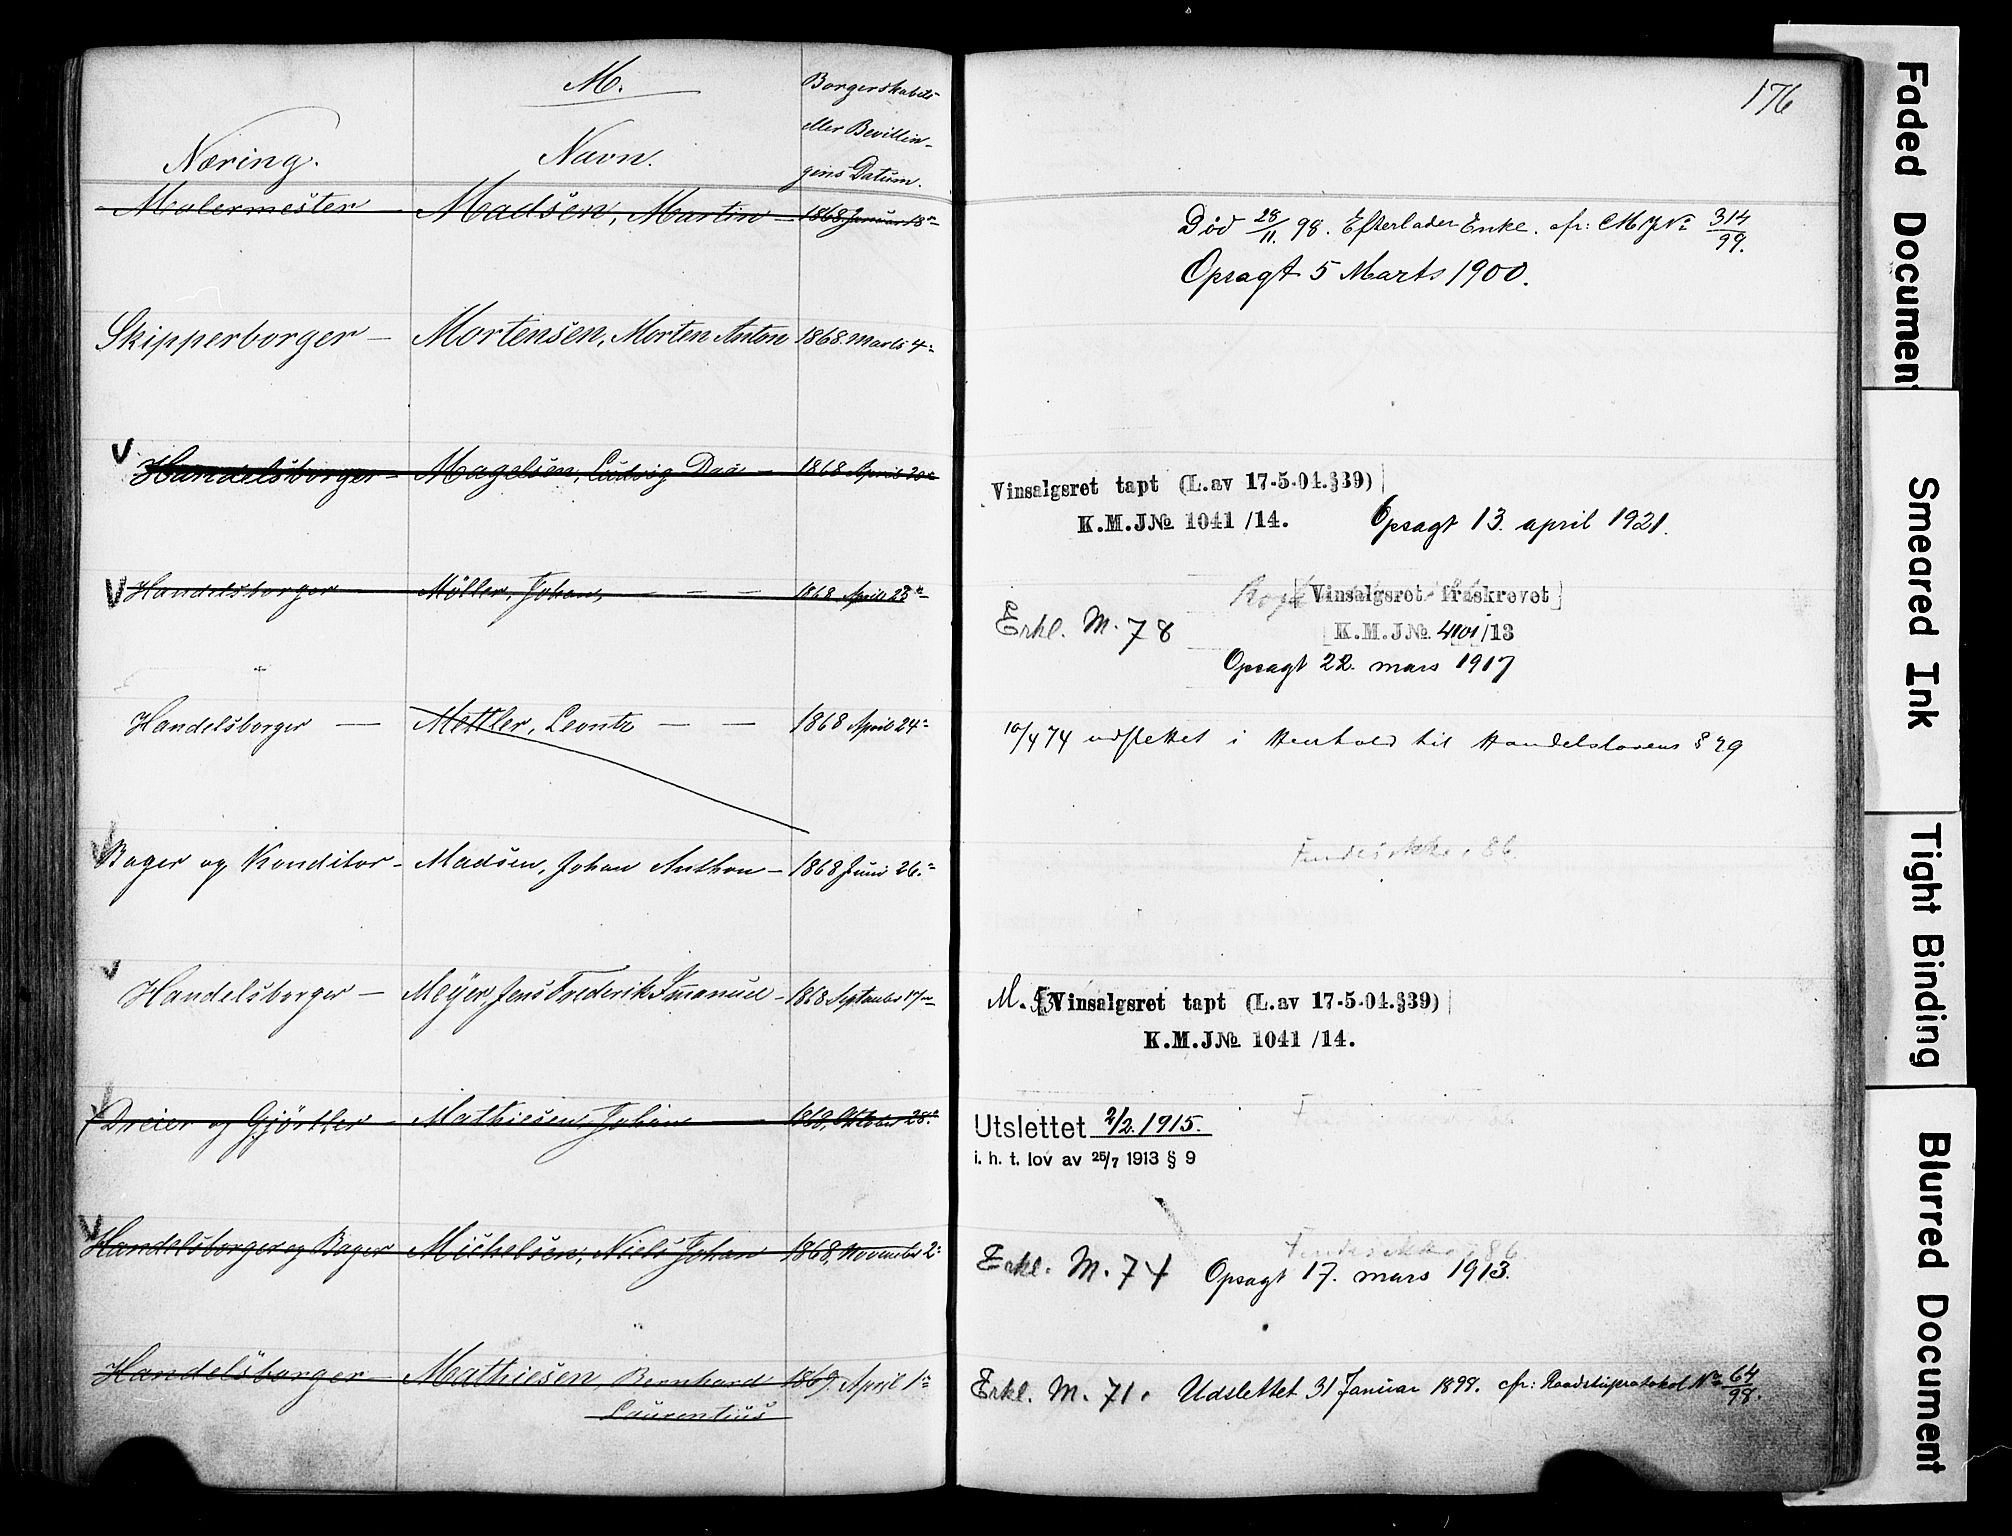 M.
Næring.
Navn.
Borgerskabets
eller Bevillin-
gens Datum.
176
Malermester - Madsen, Martin - 1868 Januar 13
Død 28/11. 98. Efterlader Enke. cfr: CMJ No 314/99.
Opsagt 5 Marts 1900.
Skipperborger - Mortensen, Morten Anton 1868. Marts 4
V Handelsborger - Magelsen, Ludvig Daa - 1868 April 20
Vinsalgsret tapt (L.av 17-5-04.§39)
K.M.J№ 1041 /14. Opsagt 13. april 1921.
V Handelsborger - Möller, Johan, - - - 1868 April 23
Vinsalgsret fraskrevet
Erkl. M. 78
K.M.J№ 4101/13
Opsagt 22. mars 1917
Handelsborger - Mettler, Leontz - - 1868 April 24
10/4 74 udslettet i Henhold til Handelslovens § 79
V Bager og Konditor - Madsen, Johan Anthon - 1868 Juni 26.
Findes ikke, 86
V Handelsborger - Meÿer, Jens Frederik Imanuel - 1868 September 17
M. 53 Vinsalgsret tapt (L.av 17-5-04.§39)
K.M.J№ 1041 /14.
V Dreier og Gjörtler - Mathiesen, Johan - 1868, Oktober 28
Utslettet 2/2. 1915.
i. h. t. lov av 25/7 1913 § 9
V Handelsborger og Bager Michelsen, Niels Johan 1868, November 2
Findes ikke, 86
Erkl. M. 74 Opsagt 17. mars 1913.
Handelsborger - Mathiesen, Bernhard 1869. April 1
Laurentius
Erkl. M. 71. Udslettet 31 Januar 1898. cfr: Raadstuprotokol No 64/98.
Faded Document
Smeared Ink
Tight Binding
Blurred Document